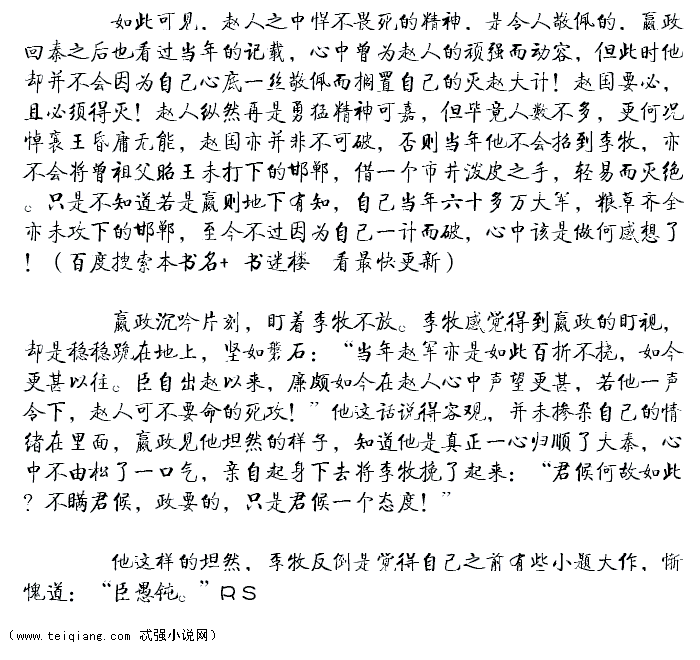 如此可见，赵人之中悍不畏死的精神，是令人敬佩的，嬴政
回秦之后也看过当年的记载，心中曾为赵人的顽强而动容，但此时他
却并不会因为自己心底一丝敬佩而搁置自己的灭赵大计！赵国要必，
且必须得灭！赵人纵然再是勇猛精神可嘉，但毕竟人数不多，更何况
悼襄王昏庸无能，赵国亦并非不可破，否则当年他不会招到李牧，亦
不会将曾祖父昭王未打下的邯郸，借一个市井泼皮之手，轻易而灭绝
。只是不知道若是嬴则地下有知，自己当年六十多万大军，粮草齐全
亦未攻下的邯郸，至今不过因为自己一计而破，心中该是做何感想了
！（百度搜索本书名+ 书迷楼 看最快更新）
嬴政沉吟片刻，盯着李牧不放。李牧感觉得到嬴政的盯视，
却是稳稳跪在地上，坚如磐石：“当年赵军亦是如此百折不挠，如今
更甚以往。臣自出赵以来，廉颇如今在赵人心中声望更甚，若他一声
令下，赵人可不要命的死攻！”他这话说得客观，并未掺杂自己的情
绪在里面，嬴政见他坦然的样子，知道他是真正一心归顺了大秦，心
中不由松了一口气，亲自起身下去将李牧挽了起来：“君候何故如此
？不瞒君候，政要的，只是君候一个态度！”
他这样的坦然，李牧反倒是觉得自己之前有些小题大作，惭
愧道：“臣愚钝。”RS
（www.teiqiang.com 忒强小说网）